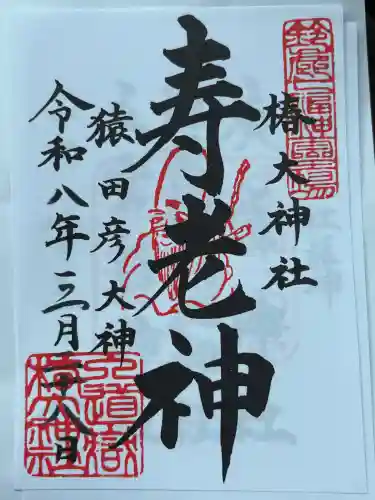 椿大神社
寿老神
猿田彦大神
令和八年三月二十八日